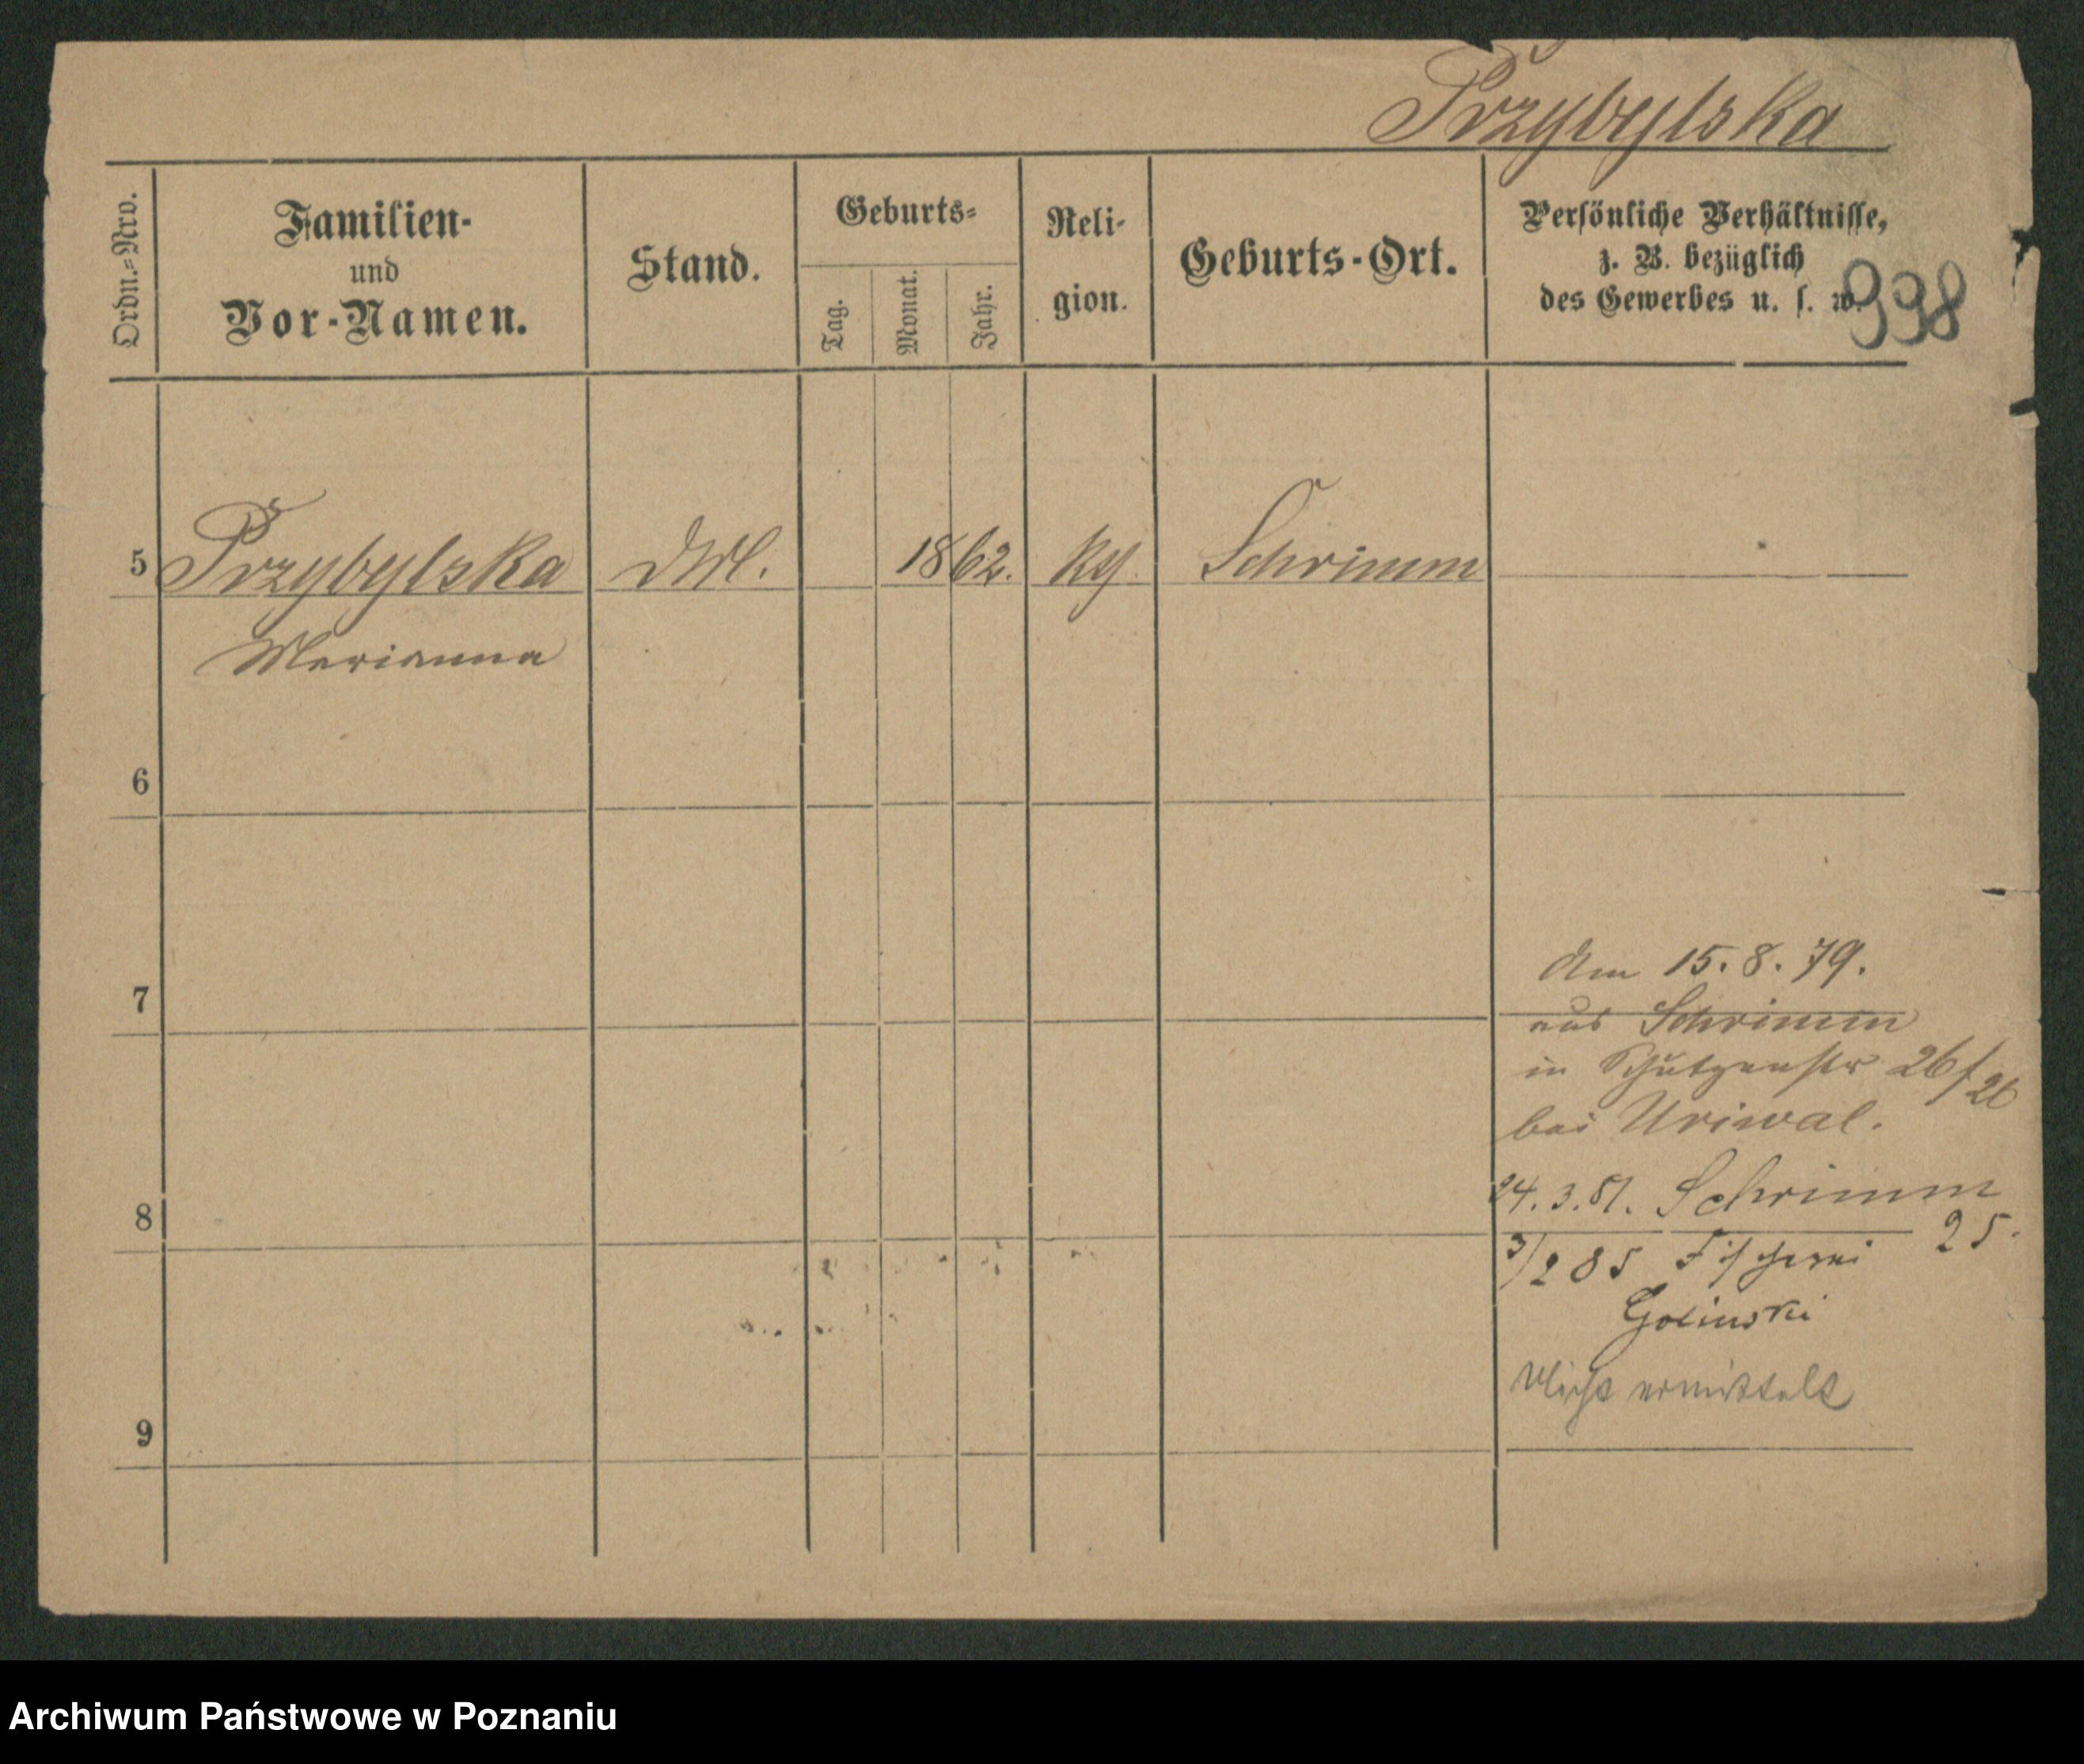 Przybylska
998
Ordn.=Nro.
Familien-
und
Vor-Namen.
Stand.
Geburts=
Tag.
Monat.
Jahr.
Reli-
gion.
Geburts-Ort.
Persönliche Verhältnisse,
z. B. bezüglich
des Gewerbes u. s. w.
5 Przybylska 1862. Schrimm
Marianna
6
7
Am 15.8.79.
aus Schrimm
in Schützenstr 26/26
bei Uriwal.
8
24.3.81. Schrimm
3/2 85 Fischerei 25.
Golinski
Nicht ermittelt
9
Archiwum Państwowe w Poznaniu